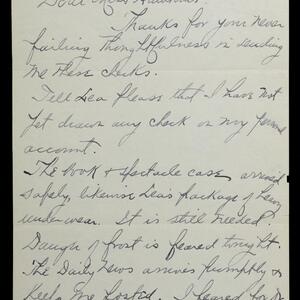 Dear Miss
Thanks for your never
failing thoughtfulness in sending
me these checks.
Tell Lea please that I have not
yet drawn any check on my personal
account.
The book & spectacle case arrived
safely, likewise Lea's package of heavy
underwear. It is still needed.
Danger of frost is feared tonight.
The Daily News arrives promptly &
keeps me posted. I feared for